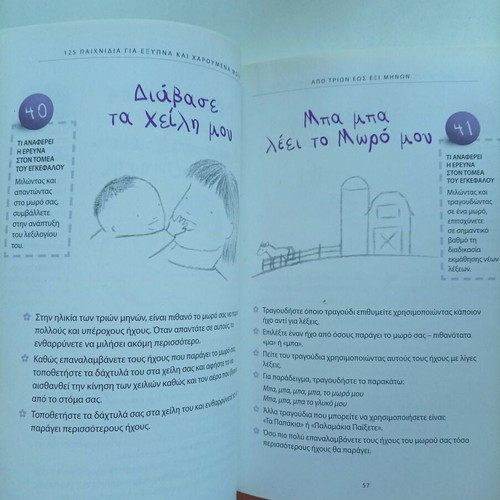 125 ΠΑΙΧΝΙΔΙΑ ΓΙΑ ΕΞΥΠΝΑ ΚΑΙ ΧΑΡΟΥΜΕΝΑ
40
Διάβασε
τα Χείλη μου
ΤΙ ΑΝΑΦΕΡΕΙ
Η ΕΡΕΥΝΑ
ΣΤΟΝ ΤΟΜΕΑ
ΤΟΥ ΕΓΚΕΦΑΛΟΥ
Μιλώντας και
απαντώντας
στο μωρό σας,
συμβάλλετε
στην ανάπτυξη
του λεξιλογίου
του.
Στην ηλικία των τριών μηνών, είναι πιθανό το μωρό σας να
πολλούς και υπέροχους ήχους. Όταν απαντάτε σε αυτούς, το
ενθαρρύνετε να μιλήσει ακόμη περισσότερο.
Καθώς επαναλαμβάνετε τους ήχους που παράγει το μωρό σας,
τοποθετήστε τα δάχτυλά του στα χείλη σας και αφήστε το να
αισθανθεί την κίνηση των χειλιών καθώς και τον αέρα που
από το στόμα σας.
Τοποθετήστε τα δάχτυλά σας στα χείλη του και ενθαρρύνετε
παράγει περισσότερους ήχους.
ΑΠΟ ΤΡΙΩΝ ΕΩΣ ΕΞΙ ΜΗΝΩΝ
41
Μπα μπα
λέει το Μωρό μου
ΤΙ ΑΝΑΦΕΡΕΙ
Η ΕΡΕΥΝΑ
ΣΤΟΝ ΤΟΜΕΑ
ΤΟΥ ΕΓΚΕΦΑΛΟΥ
Μιλώντας και
τραγουδώντας
σε ένα μωρό,
επιταχύνετε
σε σημαντικό
βαθμό τη
διαδικασία
εκμάθησης νέων
λέξεων.
Τραγουδήστε όποιο τραγούδι επιθυμείτε χρησιμοποιώντας κάποιον
ήχο αντί για λέξεις.
Επιλέξτε έναν ήχο από όσους παράγει το μωρό σας – πιθανότατα
«μα» ή «μπα».
Πείτε του τραγούδια χρησιμοποιώντας αυτούς τους ήχους με λίγες
λέξεις.
Για παράδειγμα, τραγουδήστε το παρακάτω:
Μπα, μπα, μπα, μπα, το μωρό μου
Μπα, μπα, μπα το γλυκό μου
Άλλα τραγούδια που μπορείτε να χρησιμοποιήσετε είναι:
«Τα Παπάκια» ή «Παλαμάκια Παίξετε».
Όσο πιο πολύ επαναλαμβάνετε τους ήχους του μωρού σας τόσο
περισσότερους ήχους θα παράγει.
57